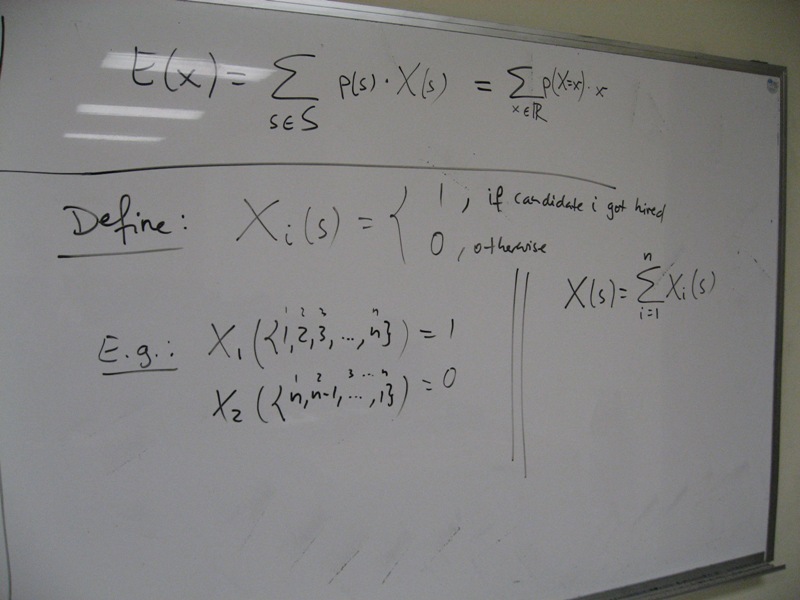 E(x) = ∑ s∈S p(s) · X(s) = ∑ x∈ℝ p(X=x) · x
Define: Xᵢ(s) = { 1, if candidate i got hired
0, otherwise
X(s) = ∑ i=1 n Xᵢ(s)
1 2 3 n
E.g.: X₁({1,2,3, ..., n}) = 1
1 2 3 ... n
X₂({n, n-1, ..., 1}) = 0